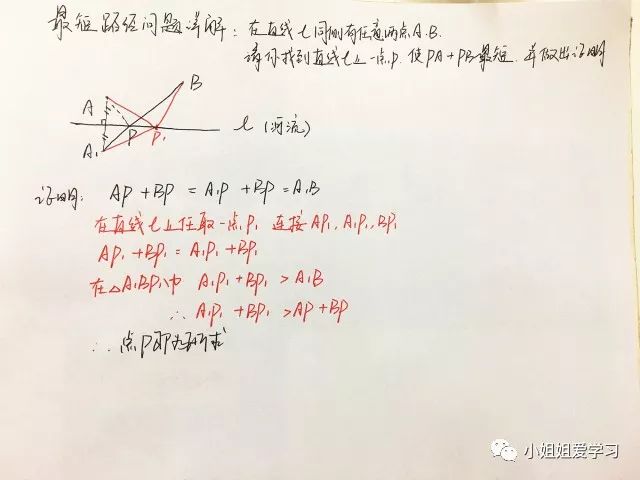 最短路径问题详解：在直线l同侧有任意两点A.B.
请你找到直线l上一点P.使PA+PB最短.并做出证明
B
A
P
P₁
l (河流)
A₁
证明: AP+BP = A₁P+BP = A₁B
在直线l上任取一点P₁ 连接AP₁、A₁P₁、BP₁
AP₁+BP₁ = A₁P₁+BP₁
在△A₁BP₁中 A₁P₁+BP₁ > A₁B
∴ A₁P₁+BP₁ > AP+BP
∴ 点P即为所求
小姐姐爱学习